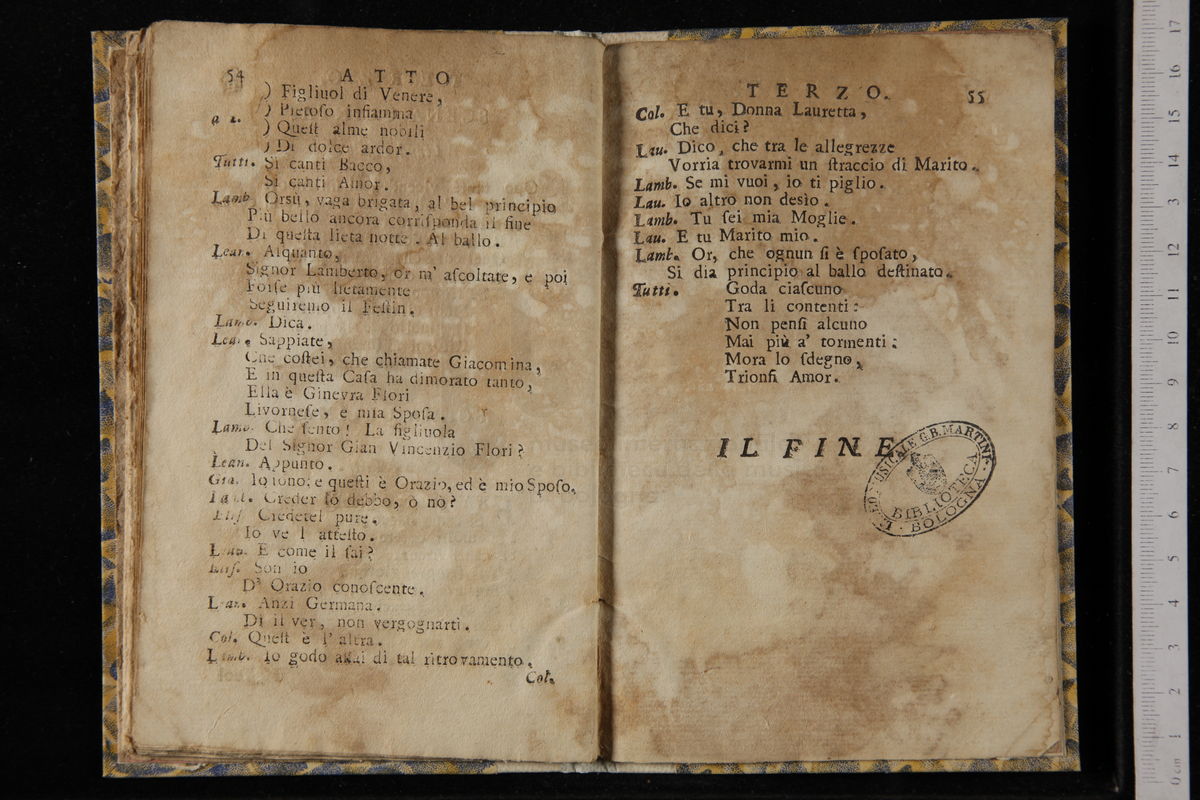 54 ATTO
) Figliuol di Venere,
) Pietoſo infiamma
a 2.
) Queſt alme nobili
) Di dolce ardor.
Tutti. Si canti Bacco,
Si canti Amor.
Lamb. Orsù, vaga brigata, al bel principio
Più bello ancora corriſponda il fine
Di queſta lieta notte. Al ballo.
Lean. Alquanto,
Signor Lamberto, or m' aſcoltate, e poi
Forſe più lietamente
Seguiremo il Feſtin.
Lamb. Dica.
Lean. Sappiate,
Che coſtei, che chiamate Giacomina,
E in queſta Caſa ha dimorato tanto,
Ella è Ginevra Flori
Livorneſe, e mia Spoſa.
Lamb. Che ſento! La figliuola
Del Signor Gian Vincenzio Flori?
Lean. Appunto.
Gia. Io ſono; e queſti è Orazio, ed è mio Spoſo.
Lamb. Creder lo debbo, ò nò?
Liſ. Credetel pure.
Io ve l' atteſto.
Lau. E come il ſai?
Liſ. Son io
D' Orazio conoſcente.
Lean. Anzi Germana.
Di il ver, non vergognarti.
Col. Queſt è l' altra.
Lamb. Io godo aſſai di tal ritrovamento.
Col.
TERZO. 55
Col. E tu, Donna Lauretta,
Che dici?
Lau. Dico, che tra le allegrezze
Vorria trovarmi un ſtraccio di Marito.
Lamb. Se mi vuoi, io ti piglio.
Lau. Io altro non desìo.
Lamb. Tu ſei mia Moglie.
Lau. E tu Marito mio.
Lamb. Or, che ognun ſi è ſpoſato,
Si dia principio al ballo deſtinato.
Tutti. Goda ciaſcuno
Tra li contenti:
Non penſi alcuno
Mai più a' tormenti:
Mora lo ſdegno,
Trionſi Amor.
IL FINE
LICEO MUSICALE G.B. MARTINI
BIBLIOTECA
BOLOGNA
0 cm 1 2 3 4 5 6 7 8 9 10 11 12 13 14 15 16 17